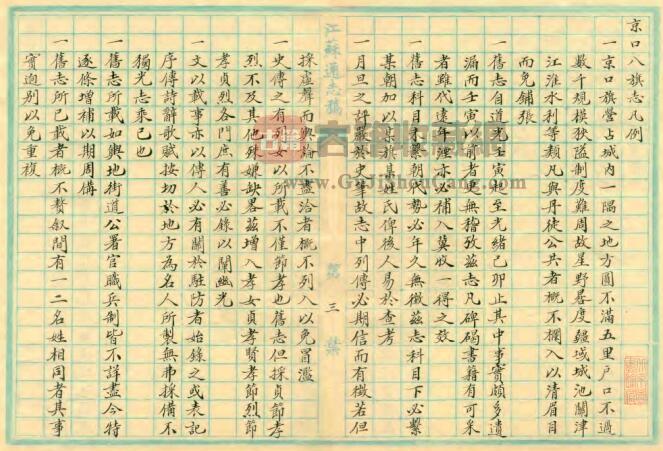 京口八旗志凡例
一京口旗營占城內一隅之地方圓不滿五里戶口不過
數千規模狹隘制度難周故星野晷度疆域城池關津
江淮水利等類凡與丹徒公共者概不攔入以清眉目
而免鋪張
一舊志自道光壬寅起至光緒己卯止其中事實頗多遺
漏而壬寅以前者更無稽攷茲志凡碑碣書籍有可采
者雖代遠年湮亦必補入冀收一得之效
一舊志科目未繫朝代勢必年久無徵茲志科目下必繫
某朝加以某旗某姓氏俾後人易於查考
一月旦之評嚴於史筆故志中列傳必期信而有徵若但
採虛聲而輿論不盡洽者概不列入以免冒濫
一史傳之有列女以所載不僅節孝也舊志但採貞節孝
烈不及其他殊嫌缺畧茲增入孝女貞孝賢孝節烈節
孝貞烈各門庶有善必錄以闡幽光
一文以載事亦以傳人必有關於駐防者始錄之或表記
序傳詩辭歌賦按切於地方為名人所製無弗採備不
獨光志乘已也
一舊志所載如輿地街道公署官職兵制皆不詳盡今特
逐條增補以期周備
一舊志所已載者概不贅叙間有一二名姓相同者其事
實迥別以免重複
江蘇通志稿
第三葉
www.GuJiShouCang.com